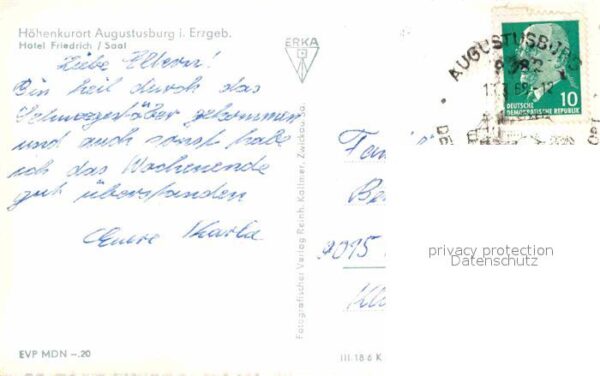 Höhenkurort Augustusburg i. Errgeb.
Hotel Friedrich / Saal
Liebe Eltern!
Bin heil durch das
gekommen
und auch sonst habe
ich das Wochenende
gut überstanden
Eure Karla
EVP MDN –.20
ERKA
Fotografischer Verlag Reinh. Kallmer, Zwickau Sa.
III 18 6 K
AUGUSTUSBURG
9382
DEUTSCHE
DEMOKRATISCHE REPUBLIK
10
9015
privacy protection
Datenschutz